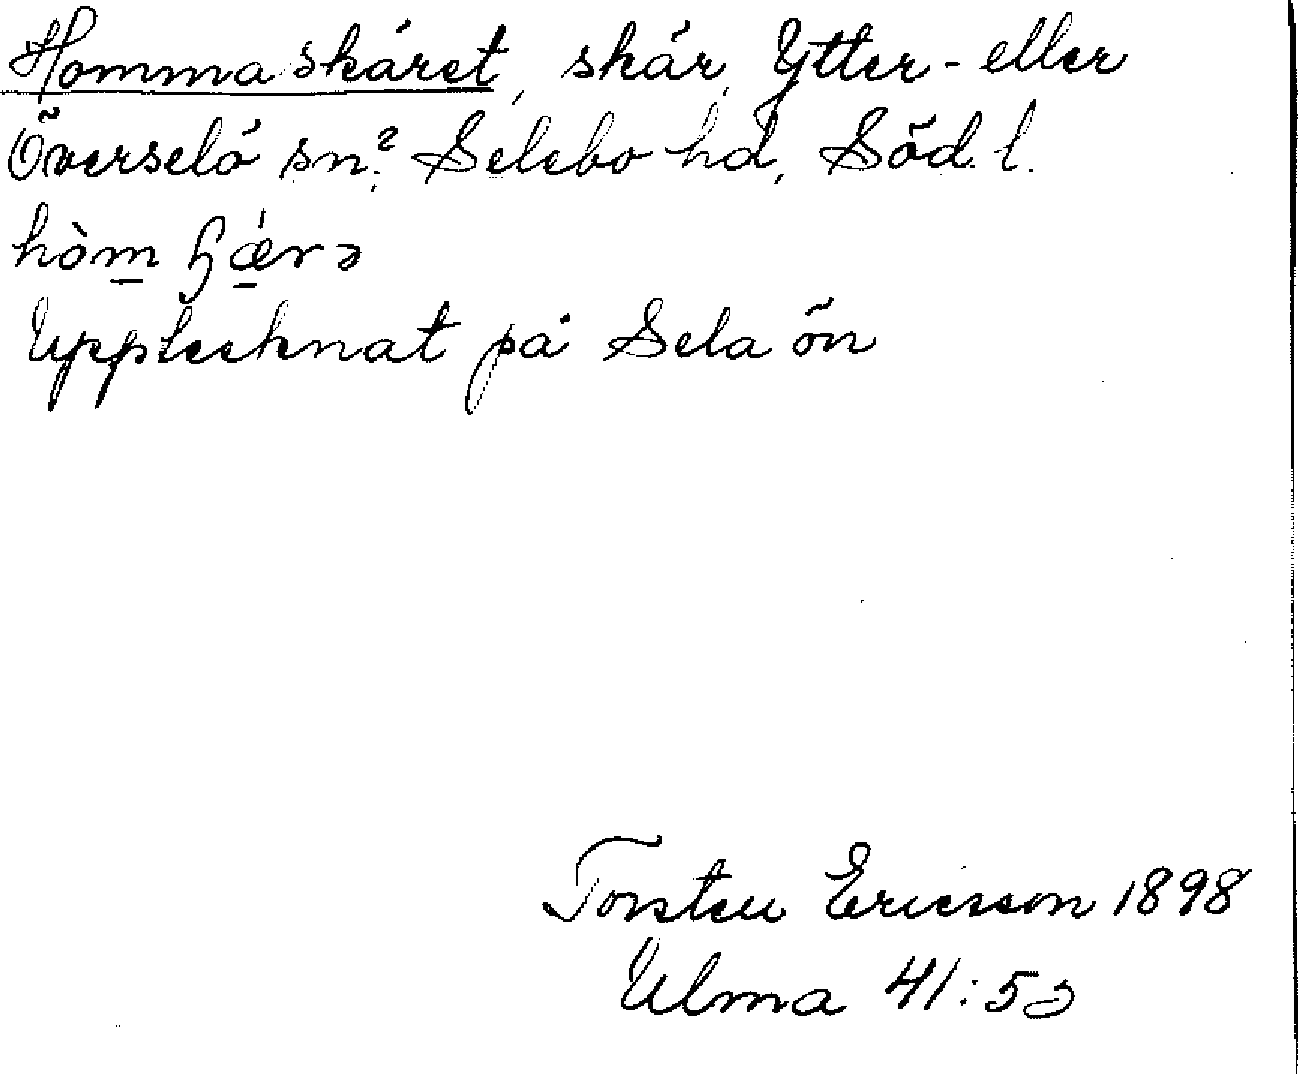 Hommaskäret, skär, Ytter- eller
Överselö sn?, Selebo hd, Söd. l.
hòm̲ ɧǽ̲rə
Upptecknat på Selaön
Torsten Ericsson 1898
Ulma 41:53